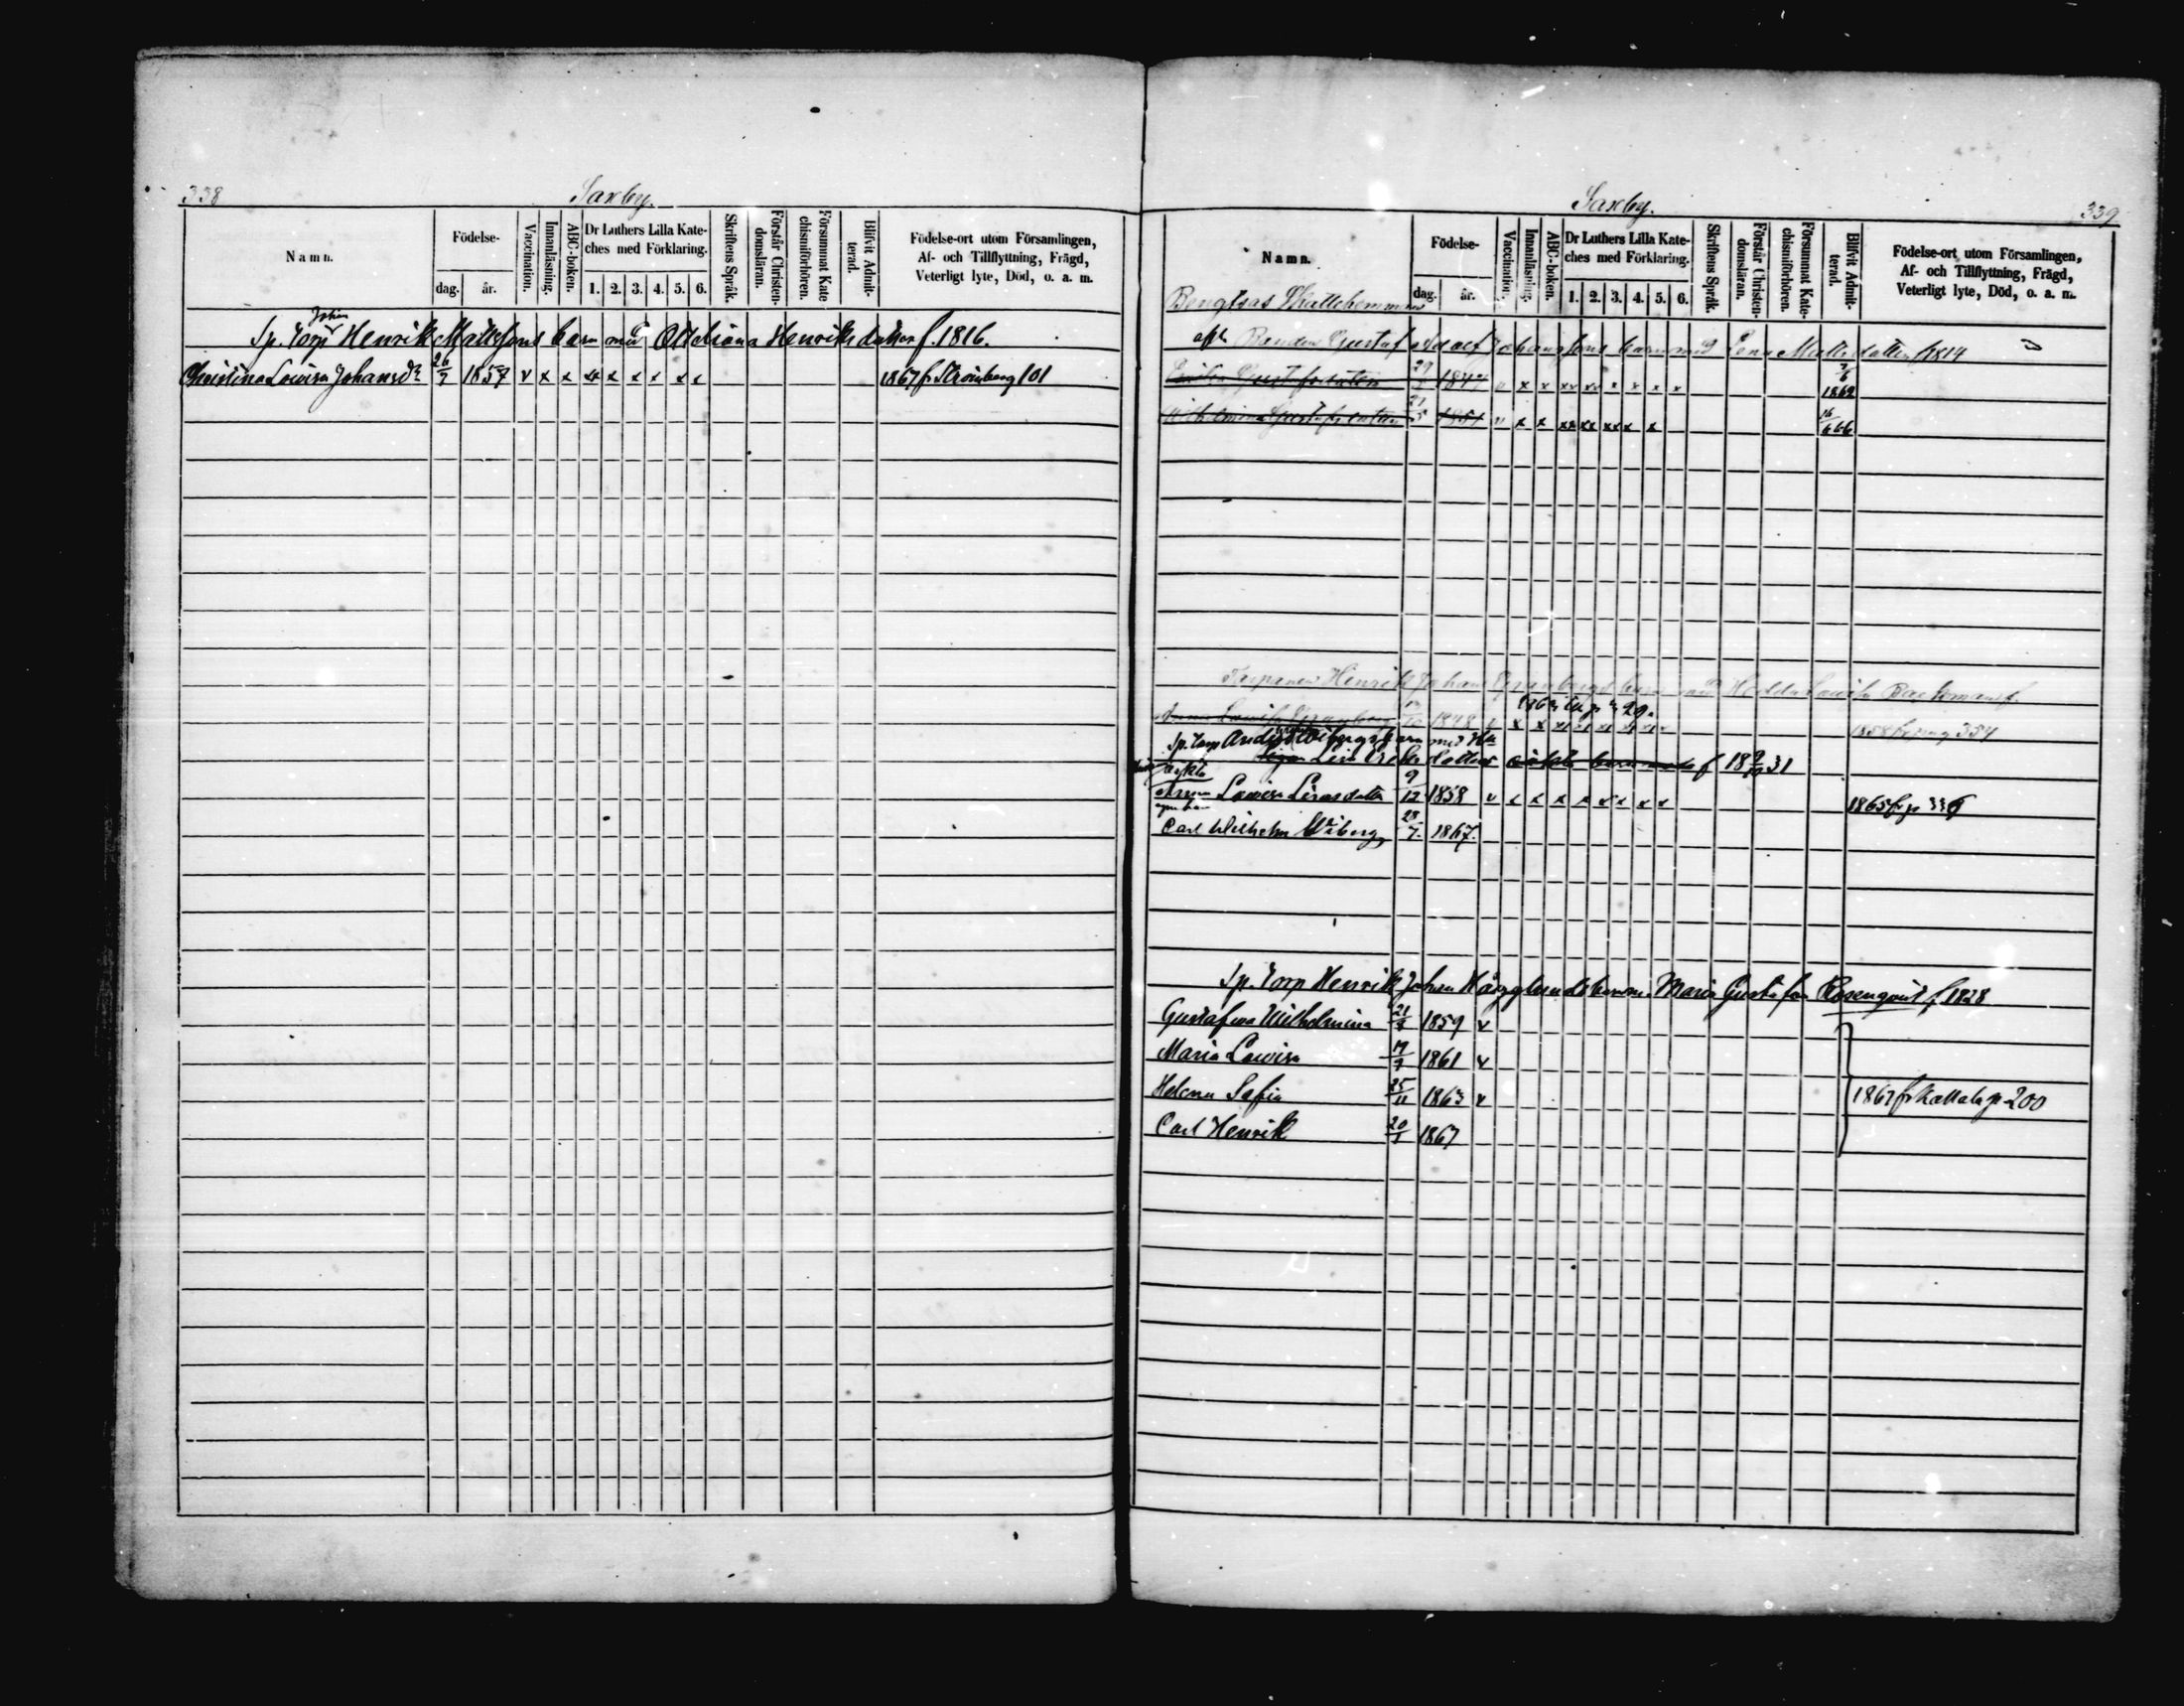 338
Saxby.
Namn.
Födelse-
dag.
år.
Vaccination.
Innanläsning.
ABC-boken.
Dr Luthers Lilla Kate-
ches med Förklaring.
1. 2. 3. 4. 5. 6.
Skriftens Språk.
Förstår Christen-
domsläran.
Försummat Kate
chismiförhören.
Blifvit Admit-
terad.
Födelse-ort utom Församlingen,
Af- och Tillflyttning, Frägd,
Veterligt lyte, Död, o. a. m.
Johan
Sp. Torp Henrik Mattssons barn med Henriksdotter f. 1816.
Christina Lovisa Johansdr 26/7 1857 v x x x x x x x x 1867 fr Strömberg 101
Saxby.
339
Namn.
Födelse-
dag.
år.
Vaccination.
Innanläsning.
ABC-boken.
Dr Luthers Lilla Kate-
ches med Förklaring.
1. 2. 3. 4. 5. 6.
Skriftens Språk.
Förstår Christen-
domsläran.
Försummat Kate-
chismiförhören.
Blifvit Admit-
terad.
Födelse-ort utom Församlingen,
Af- och Tillflyttning, Frägd,
Veterligt lyte, Död, o. a. m.
Bengtsas Skattehemman
Bonden Gustaf Adolf Johanssons barn med Lena Mattsdotter f 1814
Gustafsdotter 29 1847 x x xx xx x x x x 1862
Gustafsdotter 21/5 1851 x x xx xx xx x x 16/6 66
Torparen Henrik Johan barn med Hedda Lovisa f.
Lovisa 1848 x x x
1858 354
Sp. Torp Anders Wibergs barn med
Lisa Eriksdotter f 18 9/10 31
Anna Lovisa Lisasdotter 9/12 1858 v x x x x x x x x 1865 fr p 336
Carl Wilhelm Wiberg 28/7. 1867.
Sp. Torp Henrik Johan Hägglunds barn m. Maria Gustafva Rosenqvist f 1828
Gustafva Wilhelmina 21/8 1859 v
Maria Lovisa 1861 v
Helena Sofia 25/11 1863 v
1867 fr Kallala p 200
Carl Henrik 20/1 1867